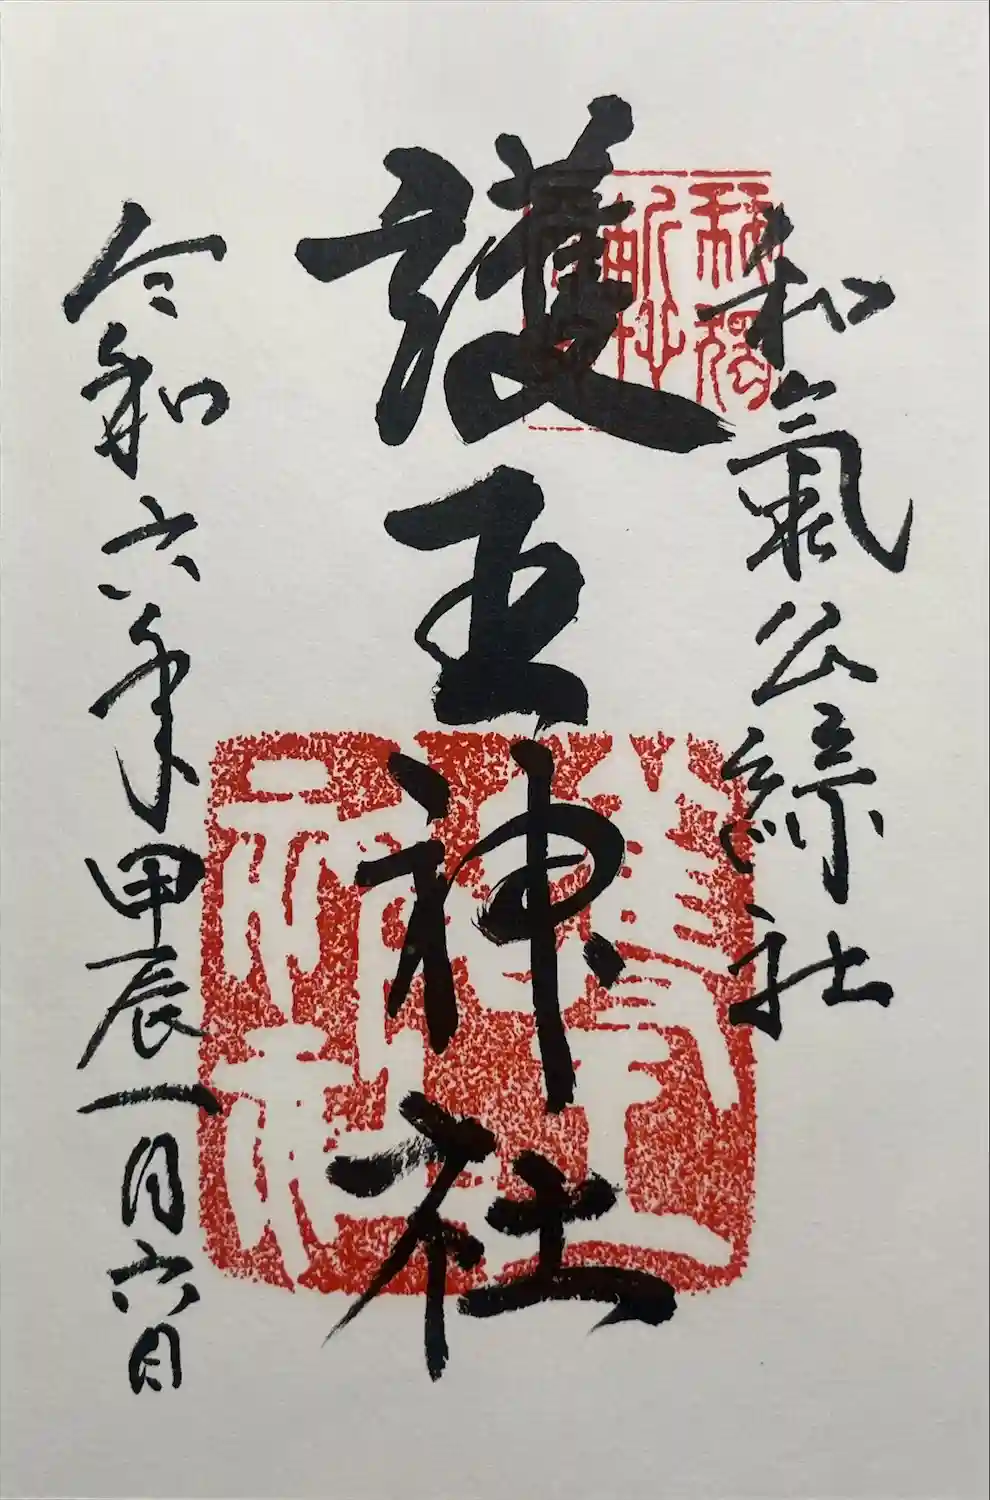 和氣公綜社
護王神社
令和六年甲辰一月六日